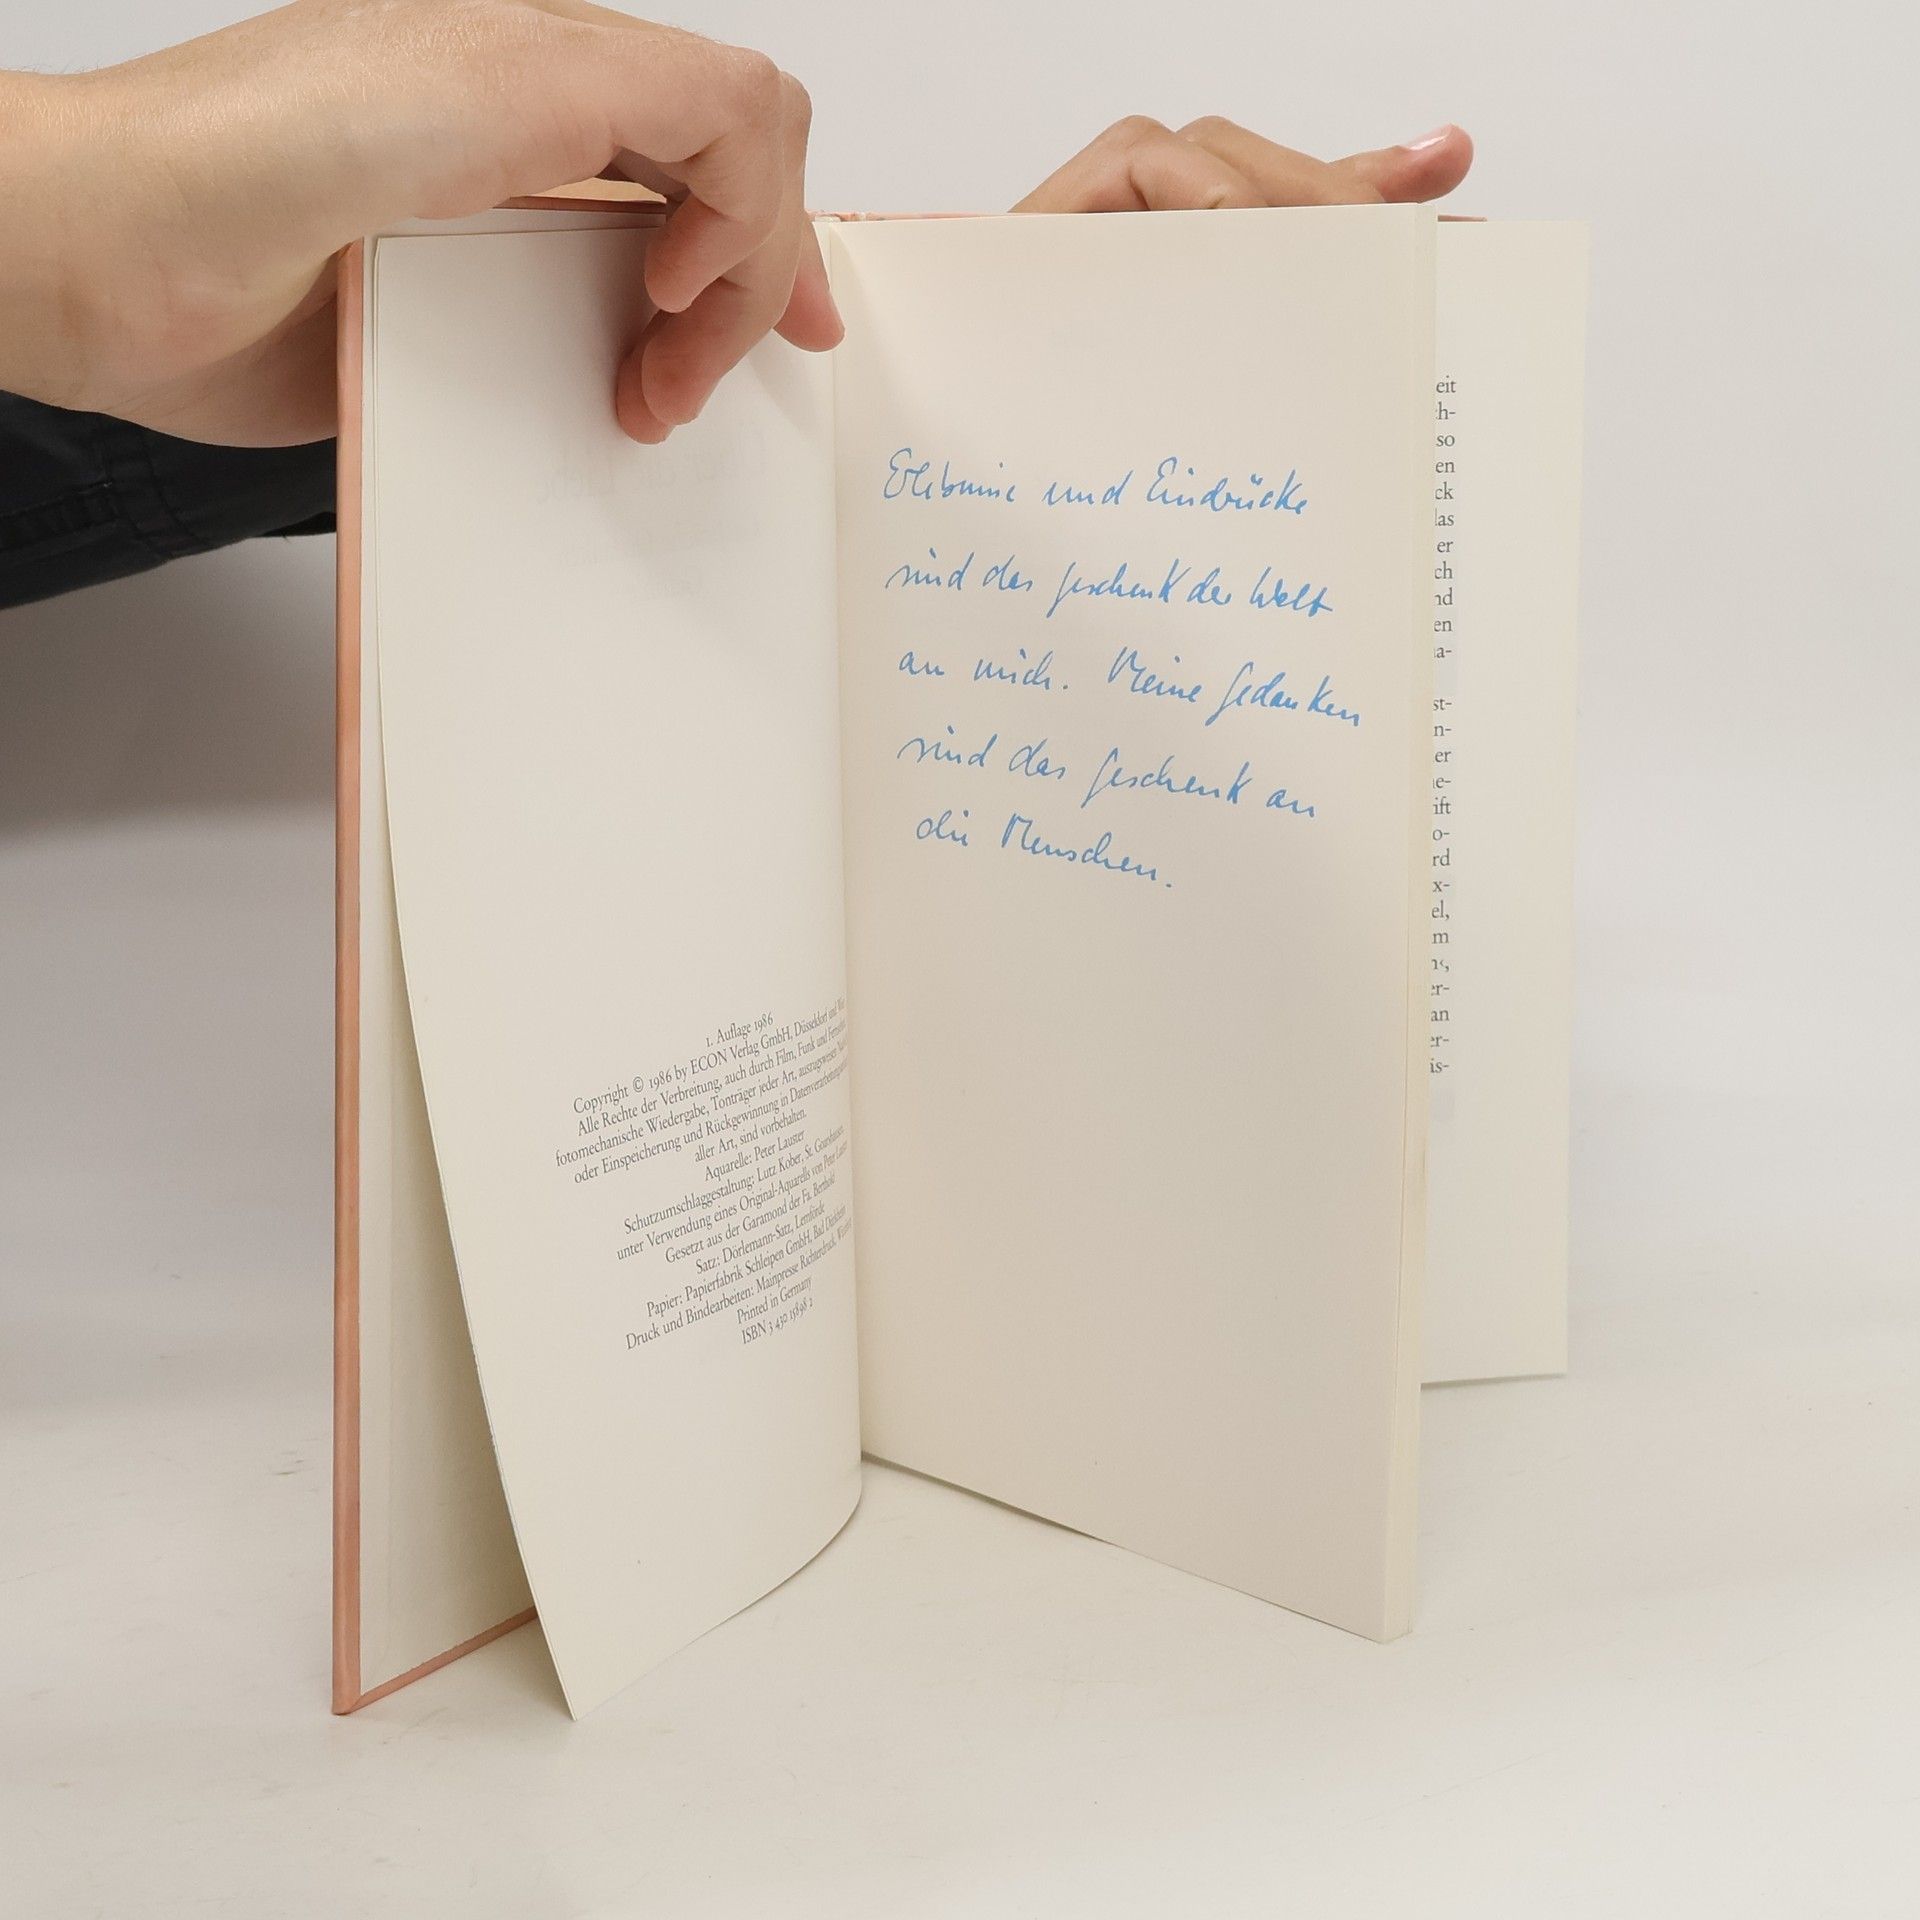 1. Auflage 1986
Copyright © 1986 by ECON Verlag GmbH, Düsseldorf und
Alle Rechte der Verbreitung, auch durch Film, Funk und Fernsehen,
fotomechanische Wiedergabe, Tonträger jeder Art, auszugsweiser
oder Einspeicherung und Rückgewinnung in
aller Art, sind vorbehalten.
Aquarelle: Peter Lauster
Schutzumschlaggestaltung: Lutz Kober, St. Goarshausen,
unter Verwendung eines Original-Aquarells von Peter Lauster
Gesetzt aus der Garamond der Fa. Berthold
Satz: Dörlemann-Satz, Lemförde
Papier: Papierfabrik Schleipen GmbH, Bad Dürkheim
Druck und Bindearbeiten: Mainpresse Richterdruck,
Printed in Germany
ISBN 3 430 15898 2
Erlebnisse und Eindrücke
sind das Geschenk der Welt
an mich. Meine Gedanken
sind das Geschenk an
die Menschen.
eit
so
en
ck
er
ch
en
er
ift
rd
el,
an